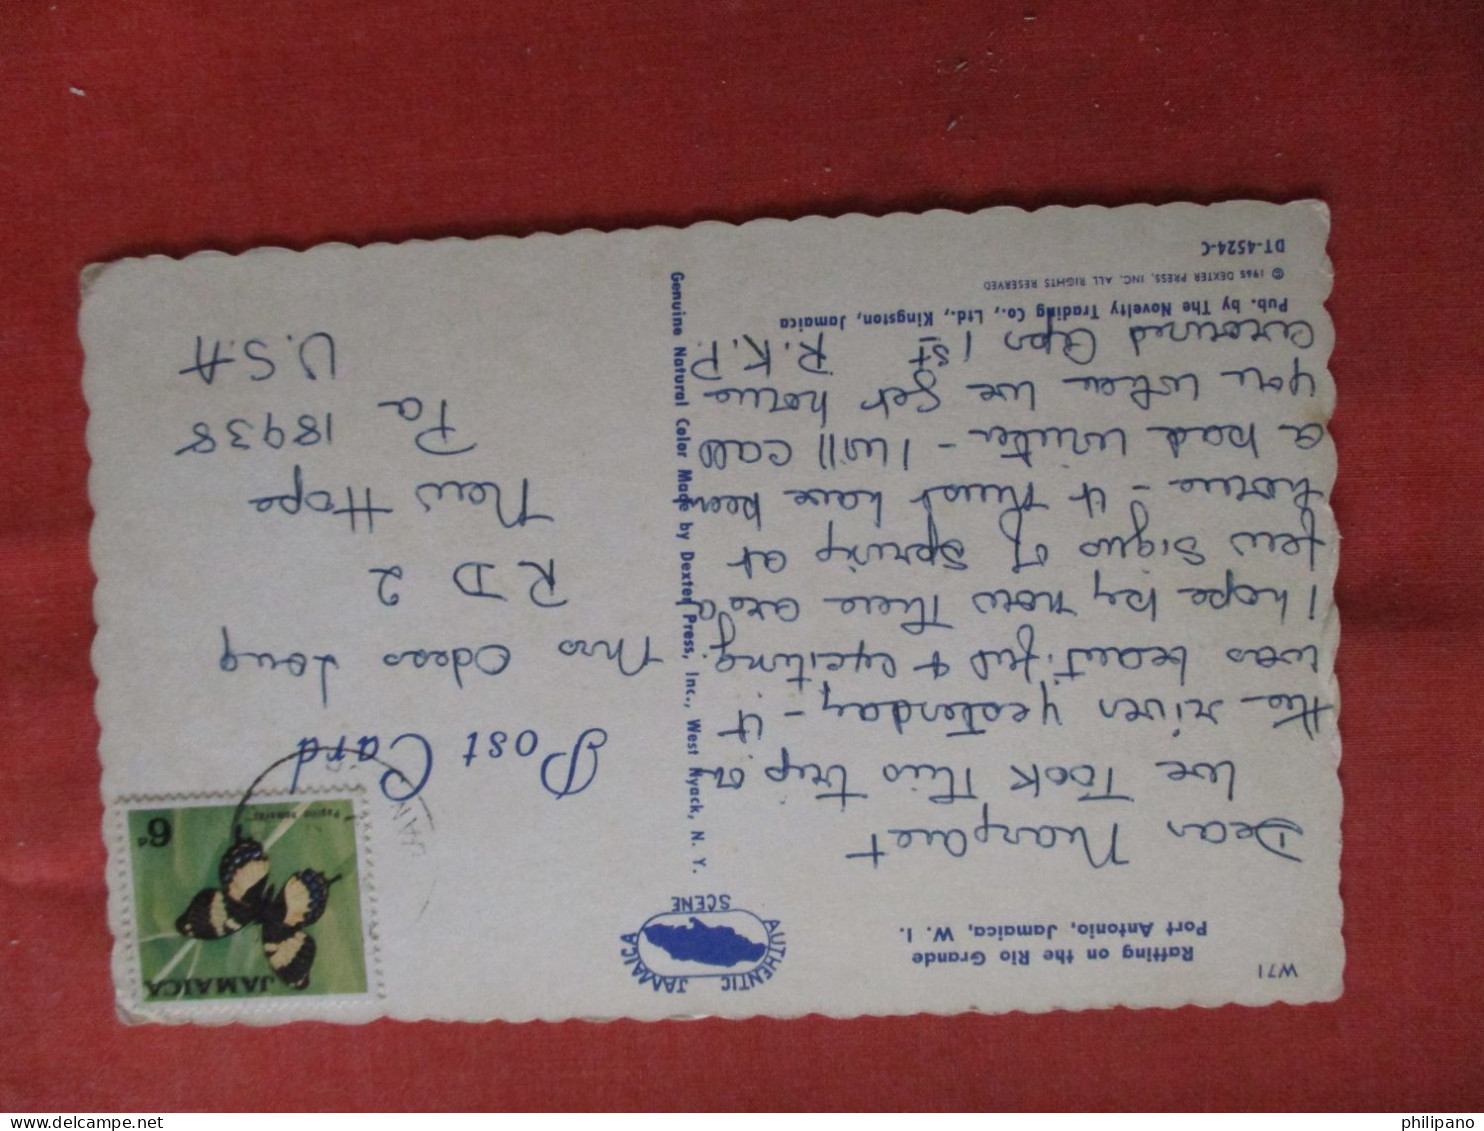 W71
Rafting on the Rio Grande
Port Antonio, Jamaica, W. I.
AUTHENTIC JAMAICA
SCENE
Dear Margaret
We Took This trip on
the river yesterday - it
was beautiful & exciting
I hope by now There are a
few signs of spring at
home - it must have been
a bad winter - I will call
you when we get home
around Apr 1st R.K.P.
Pub. by The Novelty Trading Co., Ltd., Kingston, Jamaica
© 1965 DEXTER PRESS, INC. ALL RIGHTS RESERVED
DT-4524-C
Genuine Natural Color Made by Dexter Press, Inc., West Nyack, N. Y.
JAMAICA
6d
JAN
Post Card
Mrs Odess Long
R D 2
New Hope
Pa 18938
U.S.A
philipano